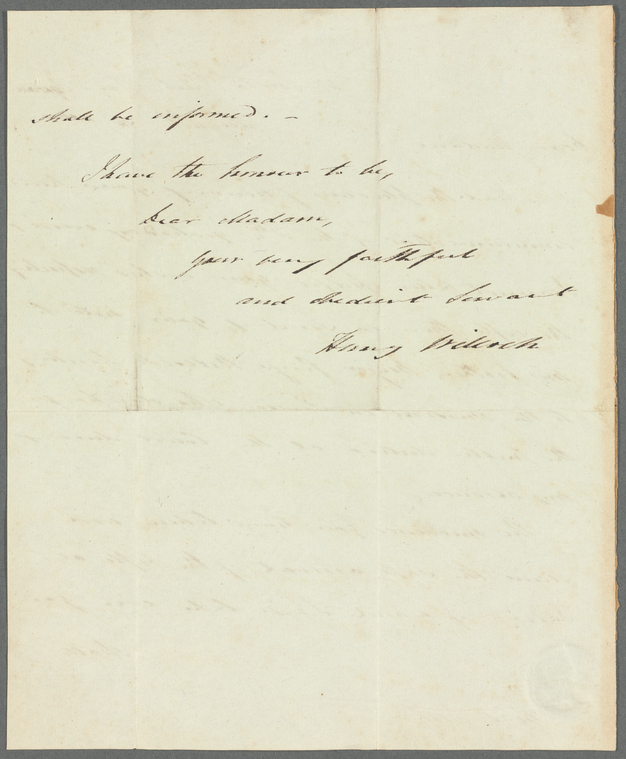 shall be informed. –
I have the honour to be,
Dear Madam,
your very faithful
and obedient Servant
Henry Willock